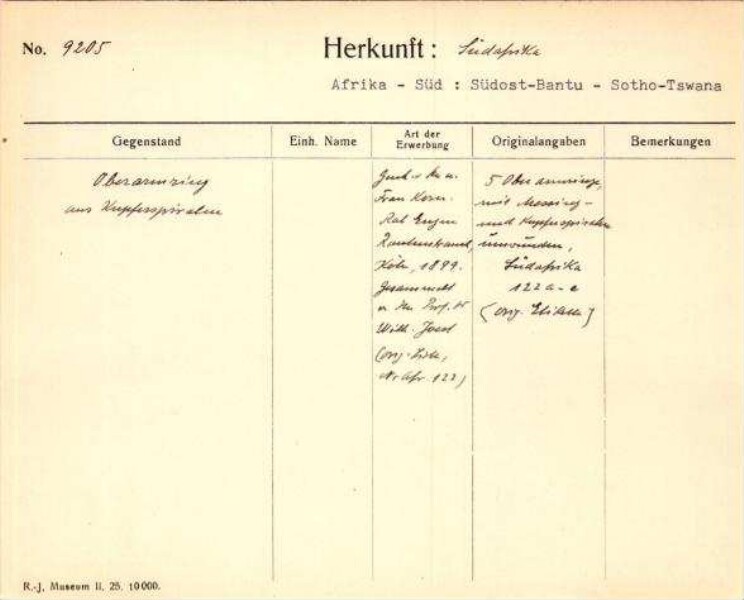 No. 9205
Herkunft: Südafrika
Afrika - Süd : Südost-Bantu - Sotho-Tswana
Gegenstand
Einh. Name
Art der Erwerbung
Originalangaben
Bemerkungen
Oberarmring
aus Kupferspiralen
Gesch. v. Hr. u.
Frau Kom.
Rat Eugen
Rautenstrauch,
Köln, 1899.
Gesammelt
v. Hr. Prof. Dr
Wilh. Joest
(orig. Liste,
Nr Afr. 122)
5 Oberarmringe,
mit Messing-
und Kupferspiralen
umwunden,
Südafrika
122 a-e
(orig. Etikett)
R.-J, Museum II, 25. 10000.